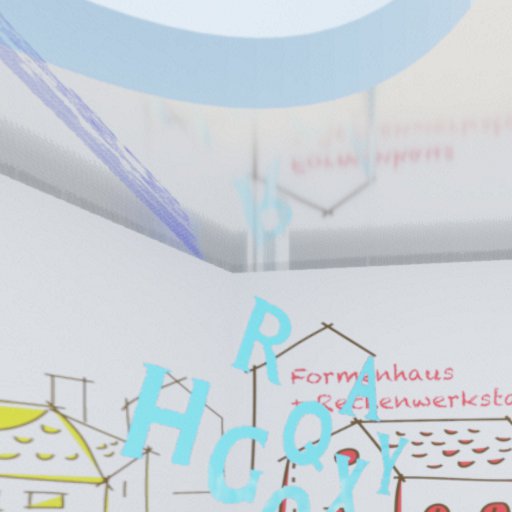 R
Formenhaus
+ Rechenwerksta
A
H
Q
C
Y
X